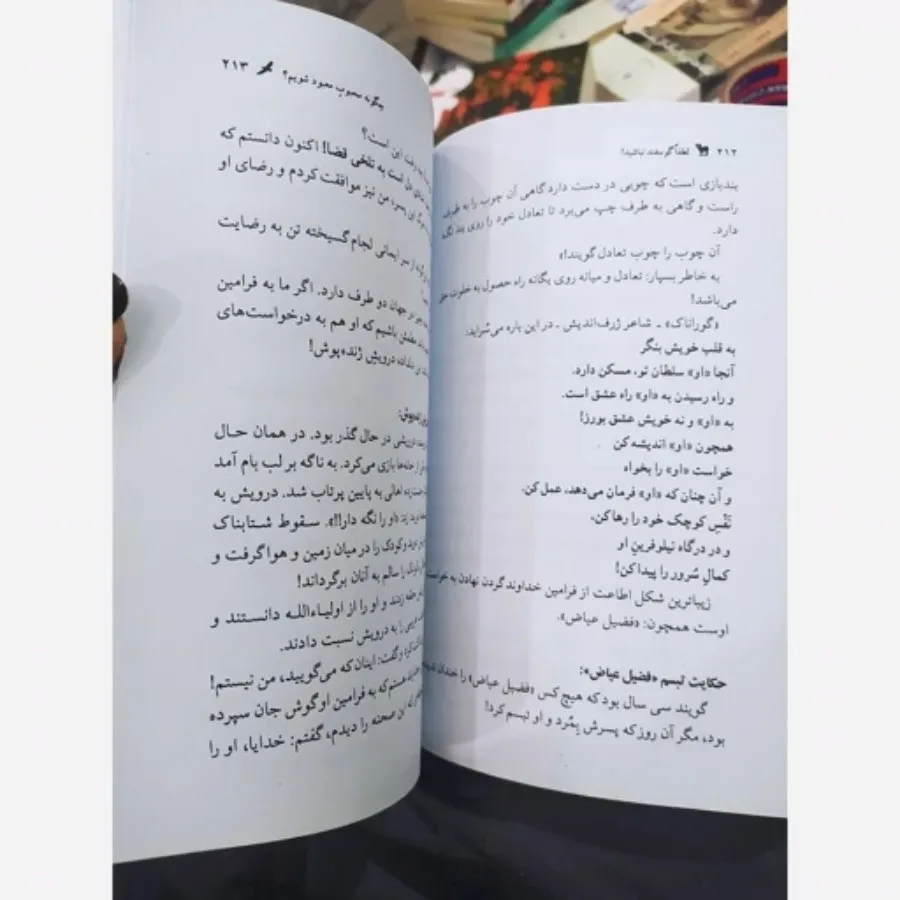 ۲۱۲ لطفاً گوسفند نباشید!
بندبازی است که چوبی در دست دارد گاهی آن چوب را به طرف
راست و گاهی به طرف چپ می‌برد تا تعادل خود را روی بند نگه
دارد.
آن چوب را چوب تعادل گویند!»
به خاطر بسپار: تعادل و میانه روی یگانه راه حصول به خلوت حق
می‌باشد!
«گوراناک» ـ شاعر ژرف‌اندیش ـ در این باره می‌سُراید:
به قلبِ خویش بنگر
آنجا «او» سلطان تو، مسکن دارد.
و راه رسیدن به «او» راه عشق است.
به «او» و نه خویش عشق بورز!
همچون «او» اندیشه کن
خواست «او» را بخواه
و آن چنان که «او» فرمان می‌دهد، عمل کن.
نَفْسِ کوچک خود را رها کن،
و در درگاه نیلوفرینِ او
کمالِ سُرور را پیدا کن!
زیباترین شکل اطاعت از فرامین خداوند گردن نهادن به خواست
اوست همچون: «فضیل عیاض».
حکایت تبسم «فضیل عیاض»:
گویند سی سال بود که هیچ کس «فضیل عیاض» را خندان ندیده
بود، مگر آن روز که پسرش بِمُرد و او تبسم کرد!
چگونه محبوب معبود شویم؟ ۲۱۳
رفت این است؟
دل است به تلخی قضا! اکنون دانستم که
این پسر، من نیز موافقت کردم و رضای او
از سر ایمانی لجام گسیخته تن به رضایت
در جهان دو طرف دارد. اگر ما به فرامین
مطمئن باشیم که او هم به درخواست‌های
درویشِ ژنده‌پوش!
ژنده‌پوش:
درویشی در حال گذر بود. در همان حال
از خانه‌ها بازی می‌کرد. به ناگه بر لب بام آمد
اهالی به پایین پرتاب شد. درویش به
زد: «او را نگه دار!!». سقوط شتابناک
و کودک را در میان زمین و هوا گرفت و
را سالم به آنان برگرداند!
حلقه زدند و او را از اولیاءالله دانستند و
را به درویش نسبت دادند.
کرد و گفت: اینان که می‌گویید، من نیستم!
هستم که به فرامین او گوش جان سپرده
این صحنه را دیدم، گفتم: خدایا، او را